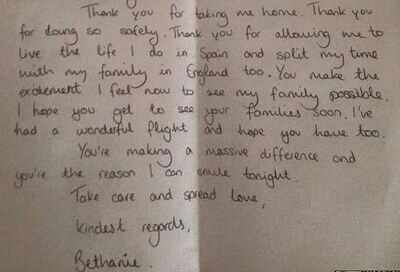 Thank you for taking me home. Thank you
for doing so safely. Thank you for allowing me to
live the life I do in Spain and split my time
with my family in England too. You make the
excitement I feel now to see my family possible.
I hope you get to see your families soon. I've
had a wonderful flight and hope you have too.
You're making a massive difference and
you're the reason I can smile tonight.
Take care and spread love,
kindest regards,
Bethanie.